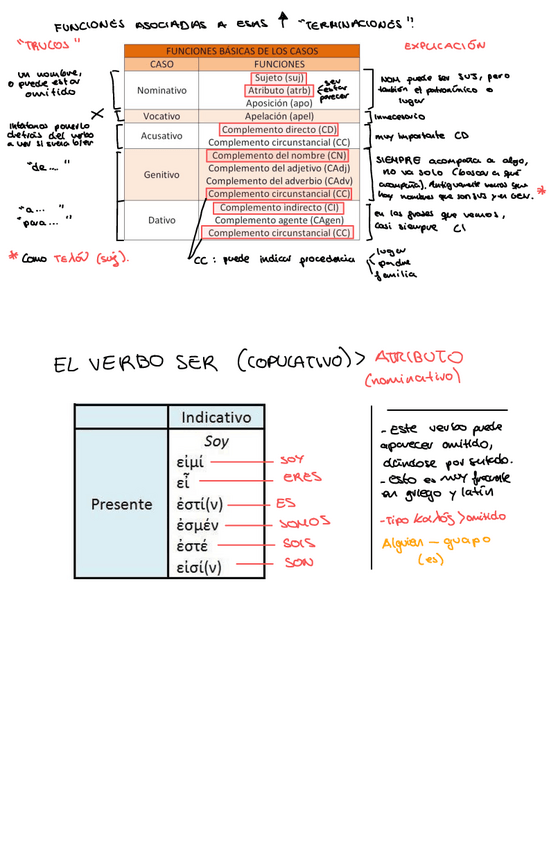 FUNCIONES ASOCIADAS A ESAS ↑ "TERMINACIONES":
"TRUCOS"
EXPLICACIÓN
FUNCIONES BÁSICAS DE LOS CASOS
CASO FUNCIONES
un nombre,
o puede estar
omitido
Nominativo
Sujeto (suj)
Atributo (atrb)
Aposición (apo)
ser
estar
parecer
NOM puede ser SUJ, pero
también el patronímico o
lugar
Vocativo Apelación (apel)
innecesario
Intentamos ponerlo
detrás del verbo
a ver si suena bien
Acusativo
Complemento directo (CD)
Complemento circunstancial (CC)
muy importante CD
"de ..."
Genitivo
Complemento del nombre (CN)
Complemento del adjetivo (CAdj)
Complemento del adverbio (CAdv)
Complemento circunstancial (CC)
SIEMPRE acompaña a algo,
no va solo (buscar a qué
acompaña). Antiguamente
hay nombres que son SUJ y en GEN. *
"a ... "
"para ..."
Dativo
Complemento indirecto (CI)
Complemento agente (CAgen)
Complemento circunstancial (CC)
en las frases que vemos,
casi siempre CI
* Como (suj).
CC: puede indicar procedencia
lugar
padre
familia
EL VERBO SER (COPULATIVO) > ATRIBUTO
(nominativo)
Indicativo
Presente
Soy
εἰμί SOY
εἶ ERES
ἐστί(ν) ES
ἐσμέν SOMOS
ἐστέ SOIS
εἰσί(ν) SON
- Este verbo puede
aparecer omitido,
dándose por sentado.
- esto es muy frecuente
en griego y latín
- Tipo καλός > omitido
Alguien — guapo
(es)